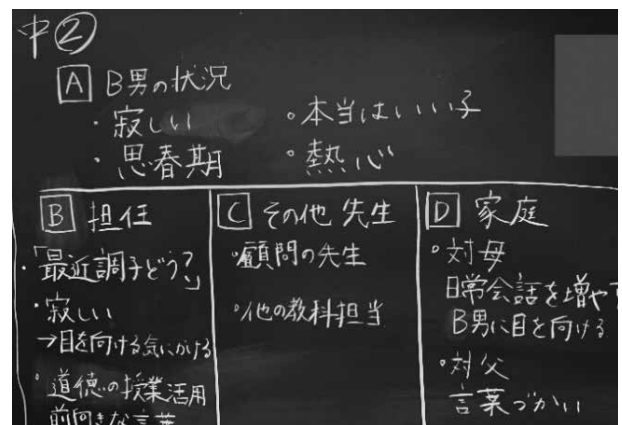 中②
A B男の状況
・寂しい
・思春期
・本当はいい子
・熱心
B 担任
・「最近調子どう?」
・寂しい
→目を向ける気にかける
・道徳の授業活用
前向きな言葉
C その他 先生
・顧問の先生
・他の教科担当
D 家庭
・対母
日常会話を増やす
B男に目を向ける
・対父
言葉づかい